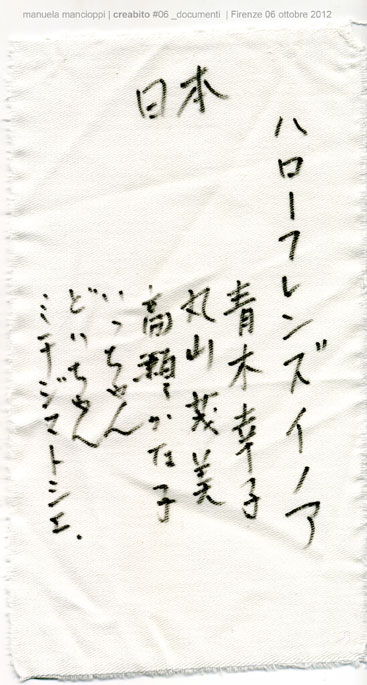 manuela mancioppi | creabito #06 _documenti | Firenze 06 ottobre 2012
日本
ハローフレンズイノア
青木幸子
丸山茂美
高瀬かな子
いっちゃん
どいちゃん
ミチジマトシエ.